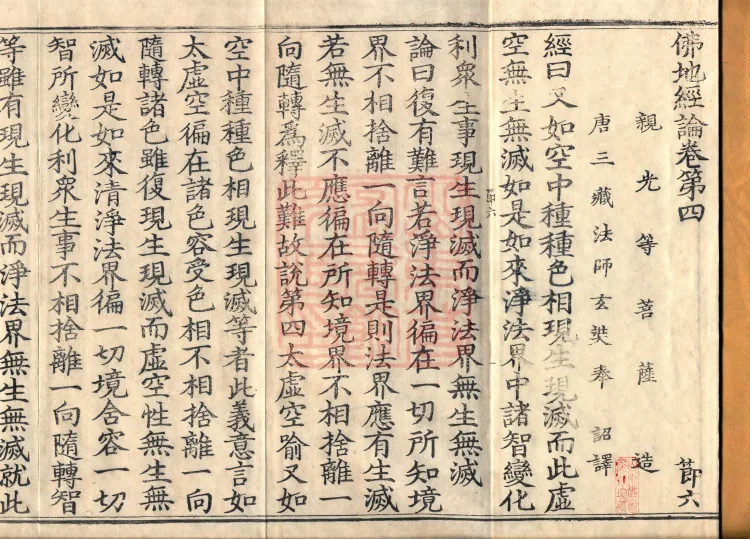 佛地經論卷第四 莭六
親光等菩薩造
唐三藏法師玄奘奉 詔譯
經曰又如空中種種色相現生現滅而此虛
空無生無滅如是如來淨法界中諸智變化
利衆生事現生現滅而淨法界無生無滅
論曰復有難言若淨法界徧在一切所知境
界不相捨離一向隨轉是則法界應有生滅
若無生滅不應徧在所知境界不相捨離一
向隨轉爲釋此難故說第四太虛空喻又如
空中種種色相現生現滅等者此義意言如
太虛空徧在諸色容受色相不相捨離一向
隨轉諸色雖復現生現滅而虛空性無生無
滅如是如來清淨法界徧一切境含容一切
智所變化利衆生事不相捨離一向隨轉智
等雖有現生現滅而淨法界無生無滅就此